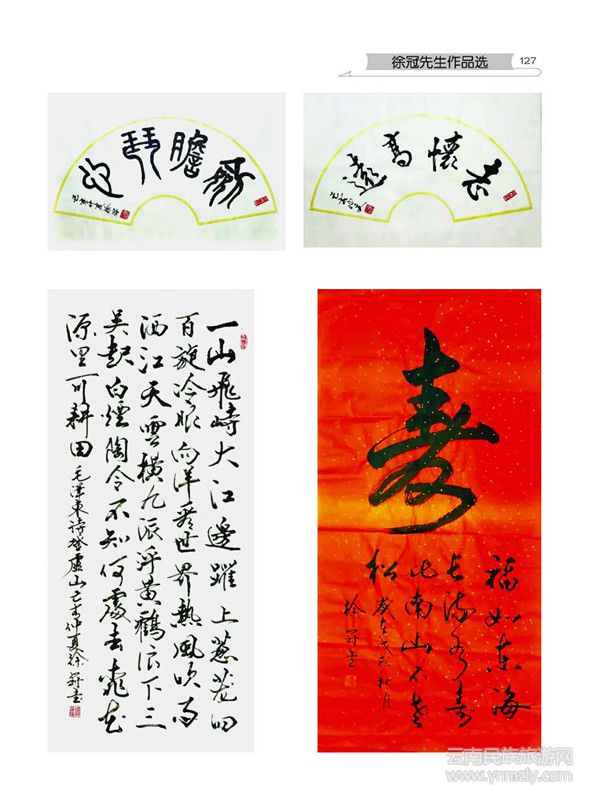 徐冠先生作品选 127
劍膽琴心
志懷高遠
一山飛峙大江邊躍上蔥蘢四
百旋冷眼向洋看世界熱風吹雨
洒江天雲橫九派浮黃鶴浪下三
吳起白煙陶令不知何處去桃花
源里可耕田 毛澤東詩登廬山己亥仲夏徐冠书
壽
福如东海
长流水壽
比南山不老
松 歲在戊戌秋月
徐冠书
云南民族旅游网
www.ynmzly.com